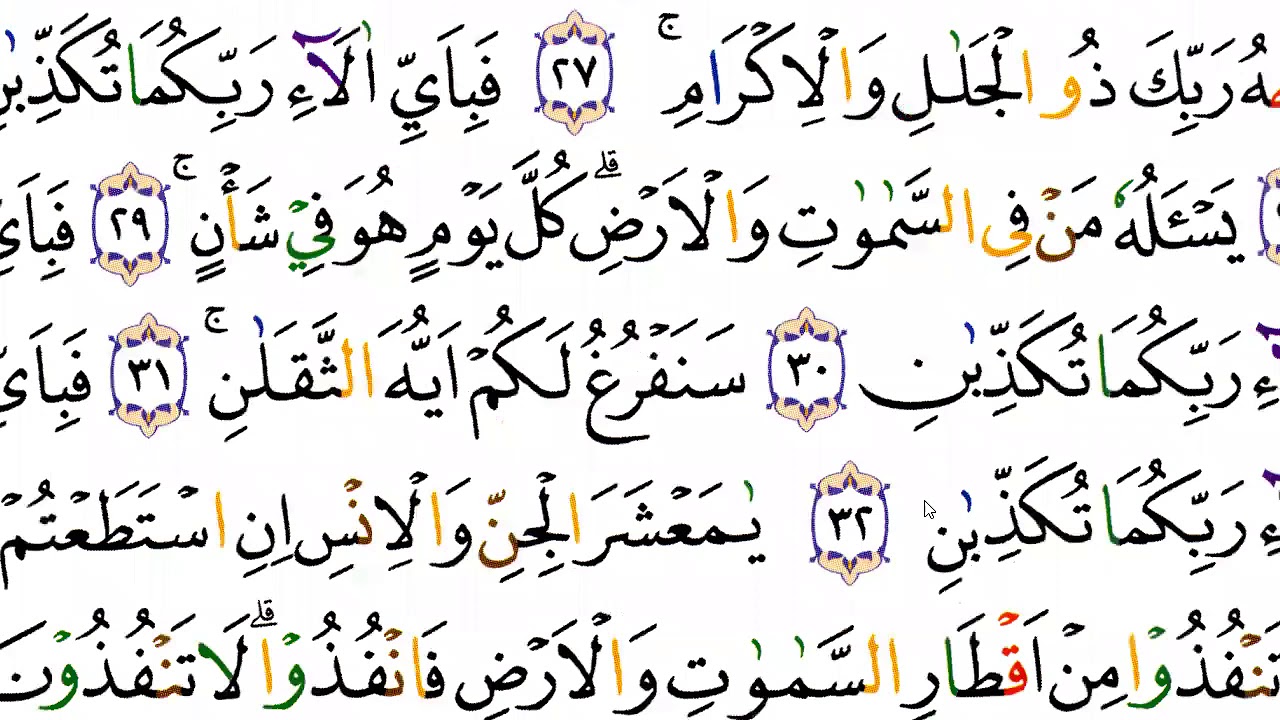 رَبِّكَ ذُو الْجَلٰلِ وَالْاِكْرَامِ ۚ ۝٢٧ فَبِاَيِّ اٰلَآءِ رَبِّكُمَا تُكَذِّبٰنِ
يَسْـَٔلُهٗ مَنْ فِى السَّمٰوٰتِ وَالْاَرْضِ ۗ كُلَّ يَوْمٍ هُوَ فِيْ شَأْنٍ ۚ ۝٢٩ فَبِاَيِّ
رَبِّكُمَا تُكَذِّبٰنِ ۝٣٠ سَنَفْرُغُ لَكُمْ اَيُّهَ الثَّقَلٰنِ ۚ ۝٣١ فَبِاَيِّ
رَبِّكُمَا تُكَذِّبٰنِ ۝٣٢ يٰمَعْشَرَ الْجِنِّ وَالْاِنْسِ اِنِ اسْتَطَعْتُمْ
تَنْفُذُوْا مِنْ اَقْطَارِ السَّمٰوٰتِ وَالْاَرْضِ فَانْفُذُوْا ۗ لَا تَنْفُذُوْنَ